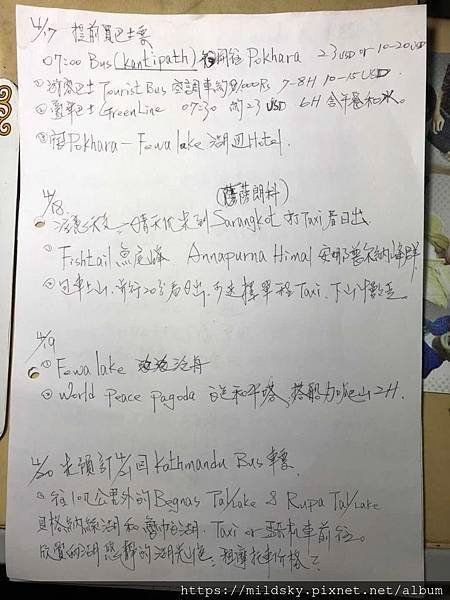 4/17 提前買巴士票
07:00 Bus (kantipath) 開往 Pokhara 23 USD or 10-20 USD
① 遊客巴士 Tourist Bus 空調車約 Rs 7-8H 10-15 USD.
② 豪華巴士 GreenLine 07:30 約23 USD 6H 含午餐和水。
③ 宿 Pokhara - Fewa lake 湖边 Hotel.
(薩朗科)
4/18. 晴天優先到 Sarangkot 打 Taxi 看日出
② Fishtail 魚尾峰 Annapurna Himal 安娜普爾納峰群
③ 日出, 可选擇單程 Taxi, 下山
4/19
① Fewa lake 泛舟
② World Peace Pagoda 世和平塔, 搭船加爬山 2H.
4/20 先預訂 4/21 回 Kathmandu Bus 車票
① 往10公里外的 Begnas Tal/Lake & Rupa Tal/Lake
貝格納斯湖和魯帕湖. Taxi or 摩托車前往。
欣賞的湖 悠靜的湖光山色, 租摩托車价格?
https://mildsky.pixnet.net/album